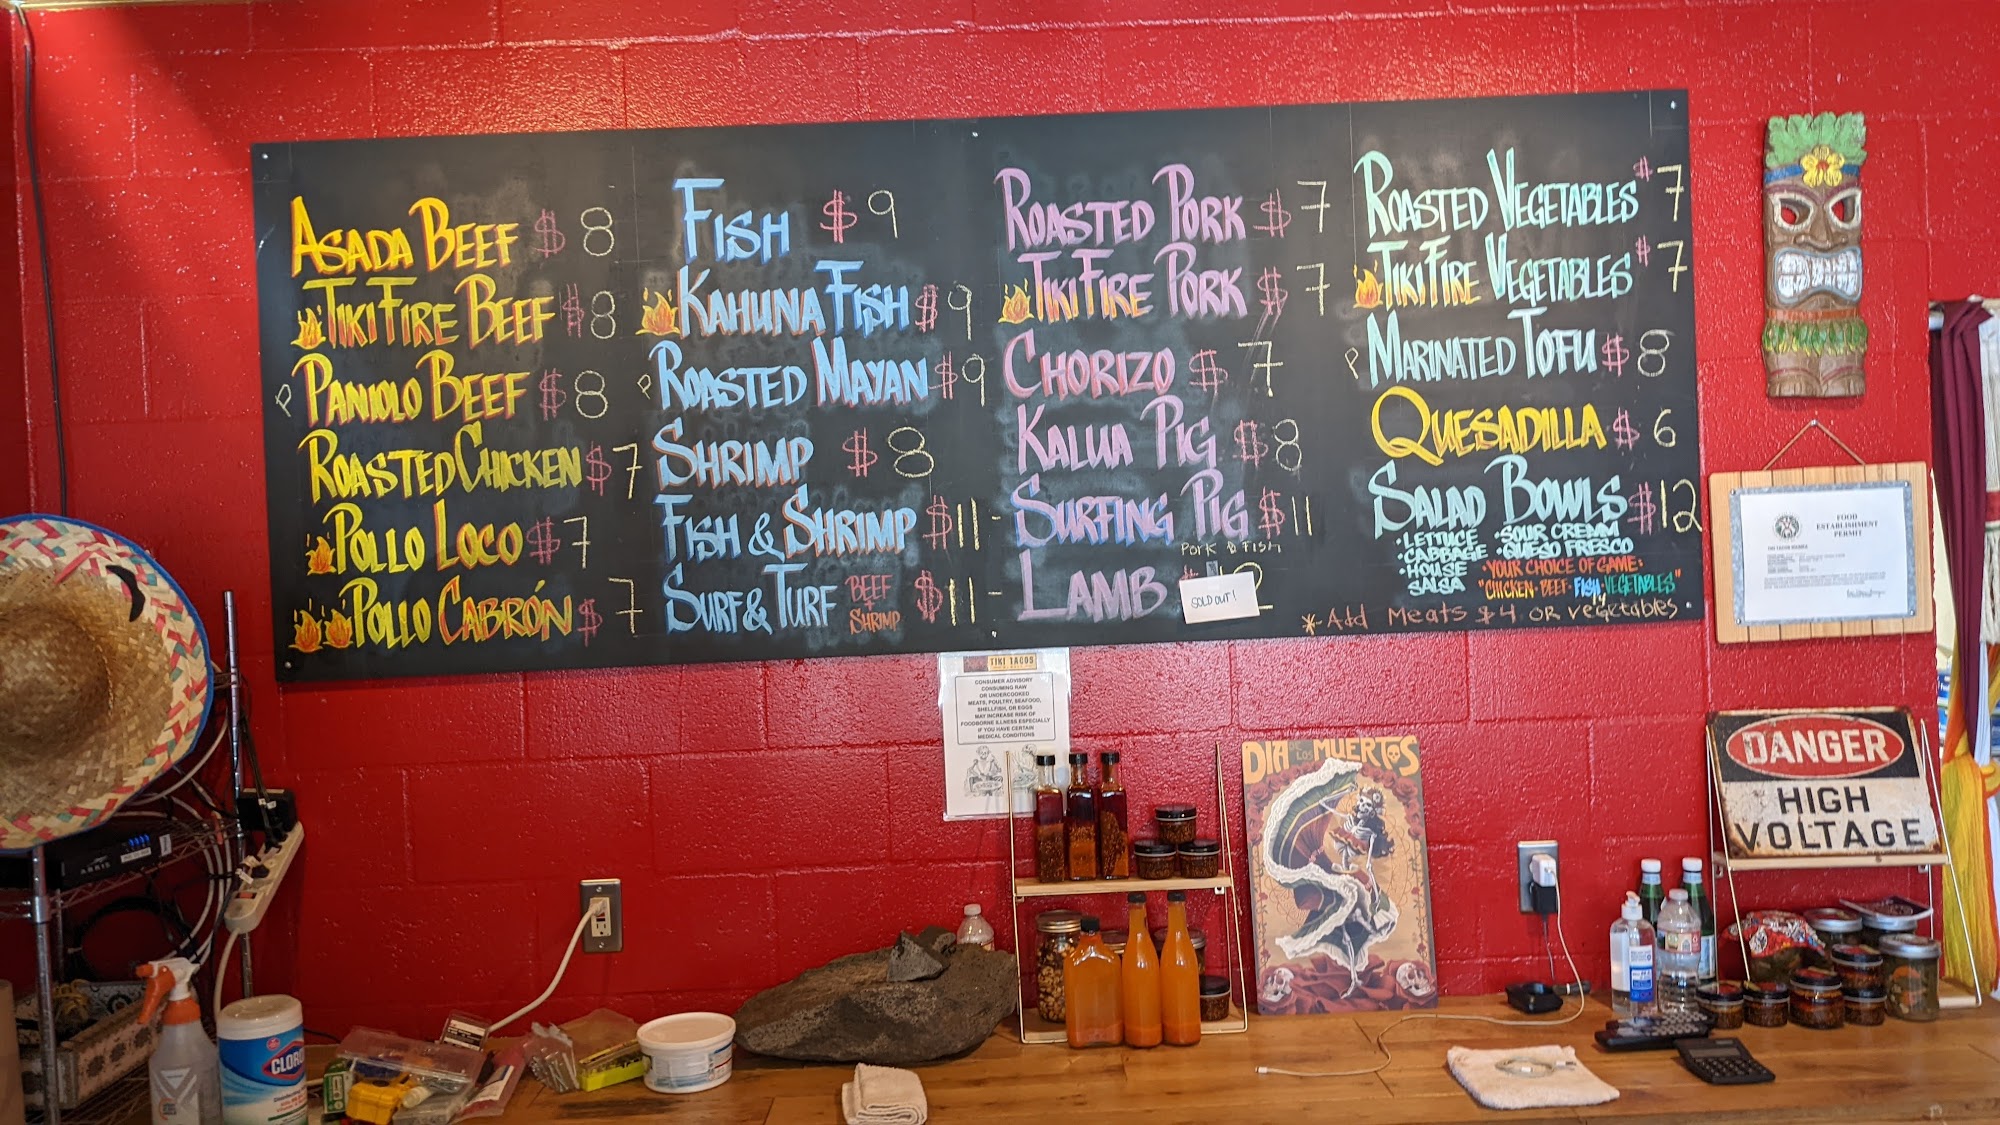 ASADA BEEF $ 8
TIKI FIRE BEEF $ 8
P PANIOLO BEEF $ 8
ROASTED CHICKEN $ 7
POLLO LOCO $ 7
POLLO CABRÓN $ 7
FISH $ 9
KAHUNA FISH $ 9
P ROASTED MAYAN $ 9
SHRIMP $ 8
FISH & SHRIMP $ 11
SURF & TURF BEEF + SHRIMP $ 11
ROASTED PORK $ 7
TIKI FIRE PORK $ 7
CHORIZO $ 7
KALUA PIG $ 8
SURFING PIG $ 11
Pork & Fish
LAMB
SOLD OUT!
ROASTED VEGETABLES $ 7
TIKI FIRE VEGETABLES $ 7
P MARINATED TOFU $ 8
QUESADILLA $ 6
SALAD BOWLS $ 12
• LETTUCE • SOUR CREMM
• CABBAGE • QUESO FRESCO
• HOUSE SALSA
• YOUR CHOICE OF GAME •
"CHICKEN • BEEF • FISH • VEGETABLES"
*-Add Meats $4 or vegetables
TIKI TACOS
CONSUMER ADVISORY
CONSUMING RAW
OR UNDERCOOKED
MEATS, POULTRY, SEAFOOD,
SHELLFISH, OR EGGS
MAY INCREASE RISK OF
FOODBORNE ILLNESS ESPECIALLY
IF YOU HAVE CERTAIN
MEDICAL CONDITIONS
FOOD
ESTABLISHMENT
PERMIT
DIA DE LOS MUERTOS
DANGER
HIGH
VOLTAGE
ARRIS
CLOROX